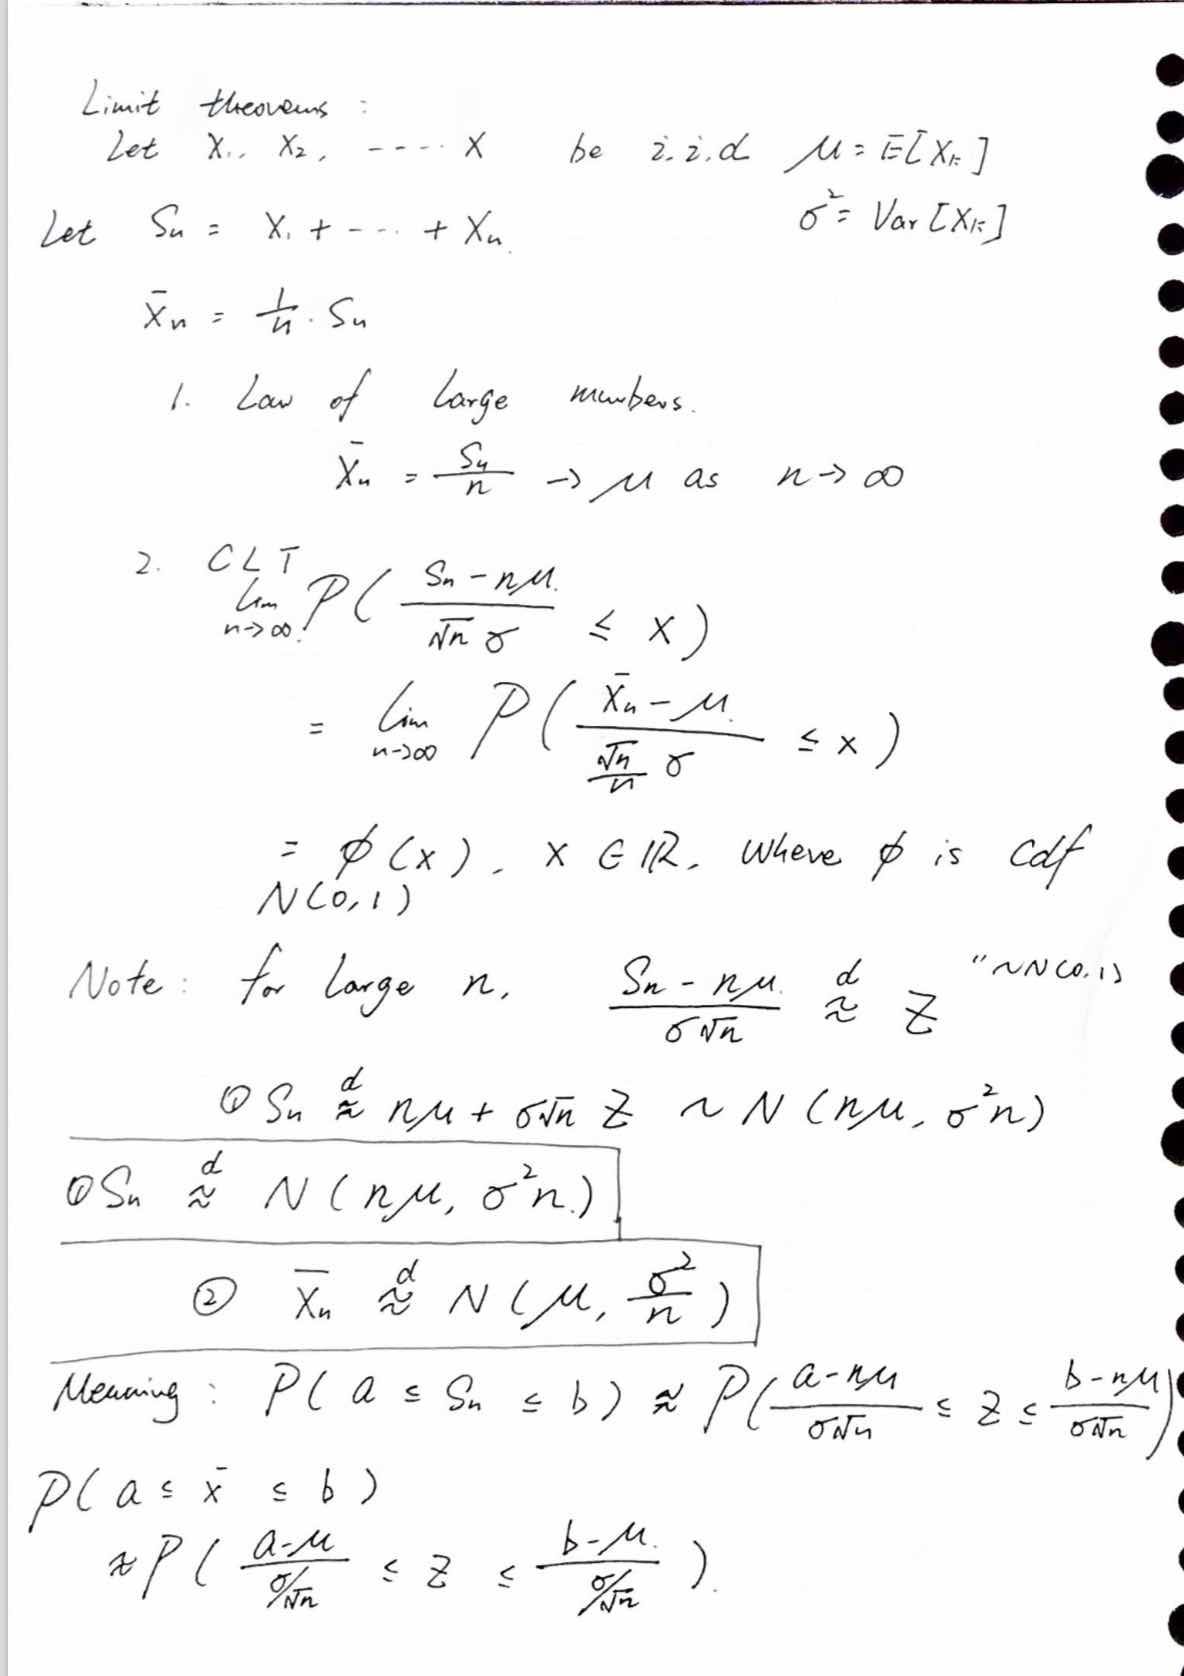 Limit theorems :
Let X₁, X₂, ---- X be i.i.d μ = E[Xₖ]
Let Sₙ = X₁ + --- + Xₙ. σ² = Var[Xₖ]
X̄ₙ = 1/n · Sₙ
1. Law of Large numbers.
X̄ₙ = Sₙ/n → μ as n → ∞
2. CLT
lim n→∞ P( (Sₙ - nμ)/(√n σ) ≤ x )
= lim n→∞ P( (X̄ₙ - μ)/((√n/n) σ) ≤ x )
= ϕ(x), x ∈ ℝ, where ϕ is cdf
N(0,1)
Note: for large n, (Sₙ - nμ)/(σ√n) ≈ᵈ Z "~N(0,1)
① Sₙ ≈ᵈ nμ + σ√n Z ~ N(nμ, σ²n)
① Sₙ ≈ᵈ N(nμ, σ²n.)
② X̄ₙ ≈ᵈ N(μ, σ²/n)
Meaning: P(a ≤ Sₙ ≤ b) ≈ P( (a-nμ)/(σ√n) ≤ Z ≤ (b-nμ)/(σ√n) )
P(a ≤ x̄ ≤ b)
≈ P( (a-μ)/(σ/√n) ≤ Z ≤ (b-μ)/(σ/√n) ).